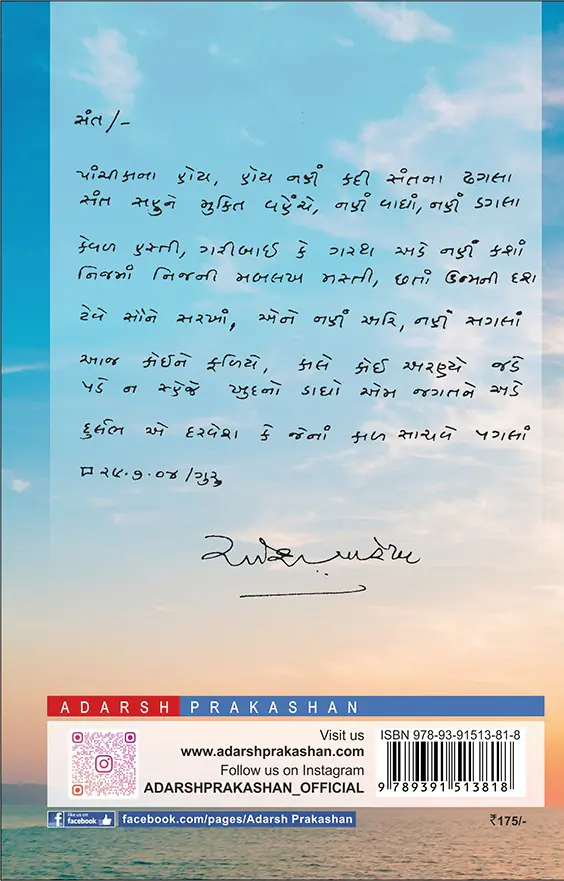 સંત/-
પાંચીકાના હોય, હોય નહીં કદી સંતના ઢગલા
સંત સહુને મુક્તિ વહેંચે, નહીં વાઘાં, નહીં ડગલા
કેવળ હસ્તી, ગરીબાઈ કે ગરથ અડે નહીં કશાં
નિજમાં નિજની મબલખ મસ્તી, છતાં ઉન્મની દશા
ટેવે સૌને સરખાં, એને નહીં અરિ, નહીં સગલાં
આજ કોઈને ફળિયે, કાલે કોઈ અરણ્યે જડે
પડે ન સ્હેજે ખુદનો ડાઘો એમ જગતને અડે
દુર્લભ એ દરવેશ કે જેનાં કાળ સાચવે પગલાં
૨૫.૭.૦૪/ગુરુ
ADARSH PRAKASHAN
Visit us
www.adarshprakashan.com
Follow us on Instagram
ADARSHPRAKASHAN_OFFICIAL
ISBN 978-93-91513-81-8
9 789391 513818
like us on facebook
facebook.com/pages/Adarsh Prakashan
₹175/-